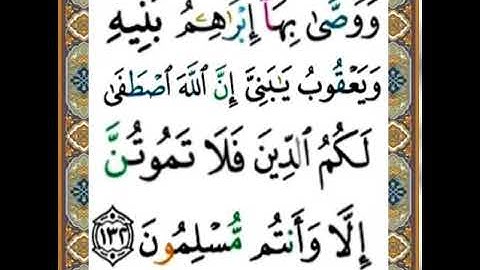 وَوَصَّىٰ بِهَآ إِبْرَٰهِـۧمُ بَنِيهِ
وَيَعْقُوبُ يَـٰبَنِىَّ إِنَّ ٱللَّهَ ٱصْطَفَىٰ
لَكُمُ ٱلدِّينَ فَلَا تَمُوتُنَّ
إِلَّا وَأَنتُم مُّسْلِمُونَ ١٣٢